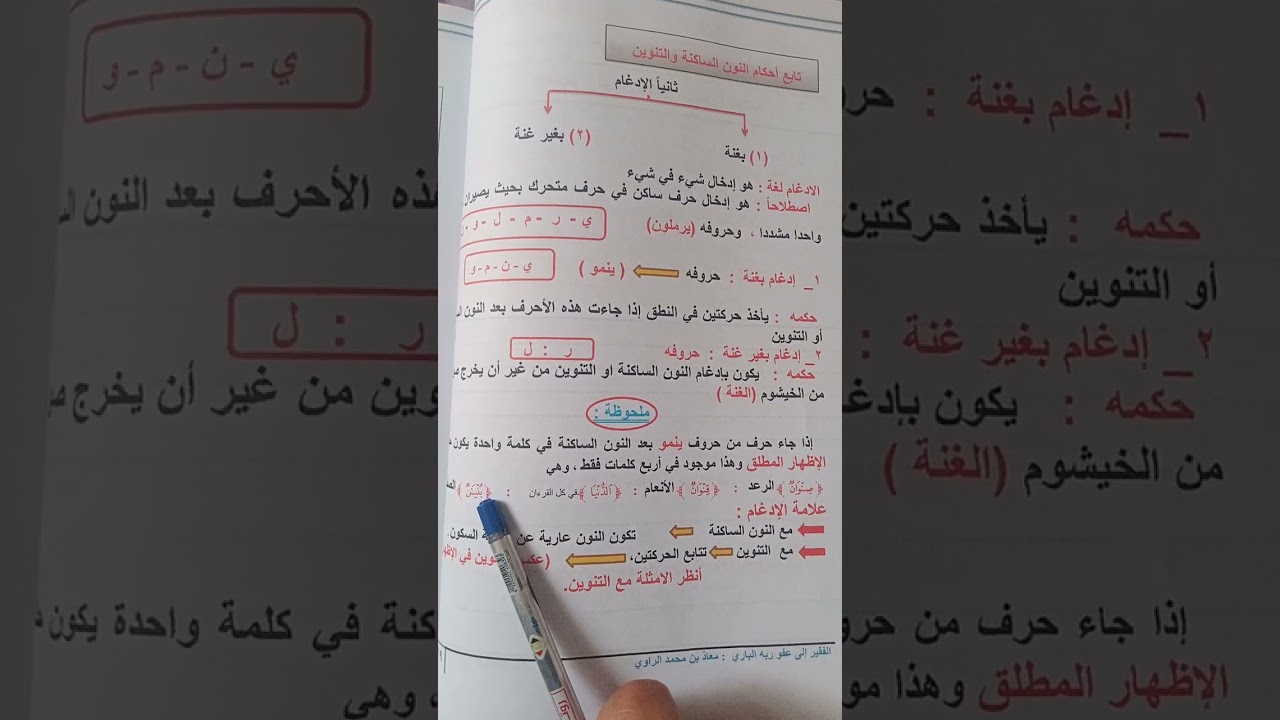 تابع أحكام النون الساكنة والتنوين
ثانياً الإدغام
(١) بغنة
(٢) بغير غنة
الادغام لغة : هو إدخال شيء في شيء
اصطلاحاً : هو إدخال حرف ساكن في حرف متحرك بحيث يصيران
واحدا مشددا ، وحروفه (يرملون)
ي - ر - م - ل - و -
١_ إدغام بغنة : حروفه ( ينمو )
ي - ن - م - و
حكمه : يأخذ حركتين في النطق إذا جاءت هذه الأحرف بعد النون
أو التنوين
٢_ إدغام بغير غنة : حروفه
ر : ل
حكمه : يكون بإدغام النون الساكنة او التنوين من غير أن يخرج
من الخيشوم (الغنة )
ملحوظة :
إذا جاء حرف من حروف ينمو بعد النون الساكنة في كلمة واحدة يكون
الإظهار المطلق وهذا موجود في أربع كلمات فقط ، وهي
﴿صِنْوَانٌ﴾ الرعد : ﴿قِنْوَانٌ﴾ الأنعام : ﴿الدُّنْيَا﴾ في كل القرءان : ﴿بُنْيَنٌ﴾
علامة الإدغام :
مع النون الساكنة تكون النون عارية عن السكون.
مع التنوين تتابع الحركتين، في
أنظر الامثلة مع التنوين.
الفقير إلى عفو ربه الباري : معاذ بن محمد الراوي